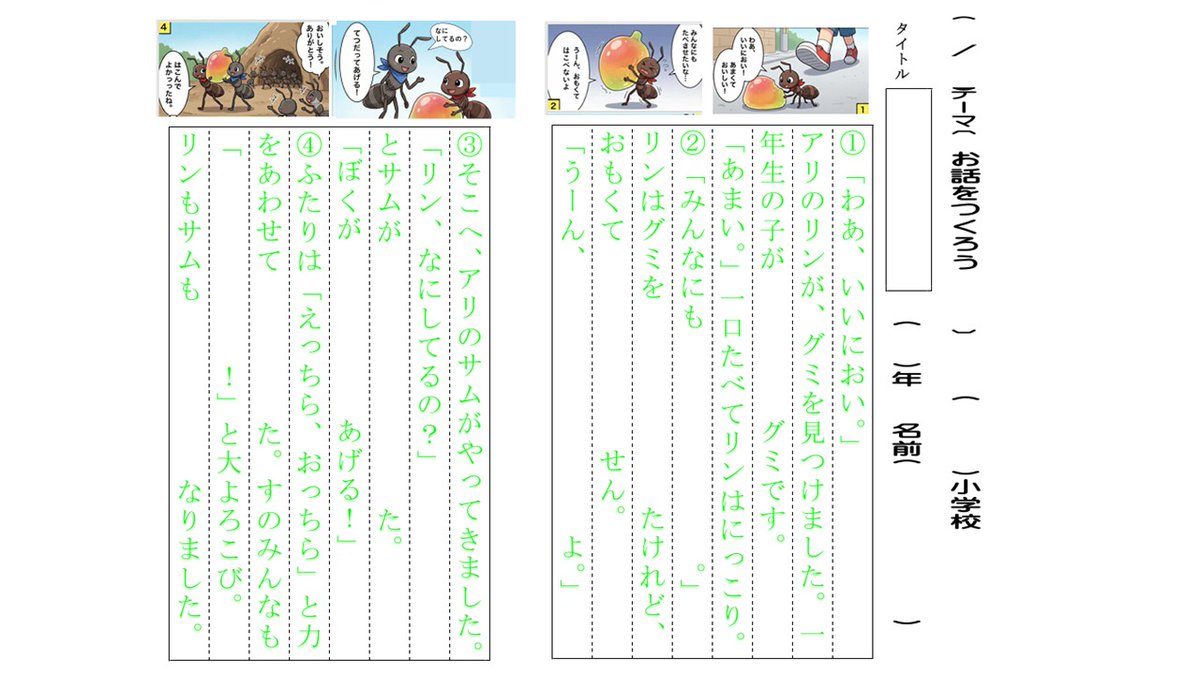 （　／　テーマ（　お話をつくろう　）（　）小学校
タイトル
（　）年　名前（　）
わあ、
いいにおい！
あまくて
おいしい！
1
みんなにも
たべさせたいな…
うーん、おもくて
はこべないよ
2
①「わあ、いいにおい。」
アリのリンが、グミを見つけました。一
年生の子が　グミです。
「あまい。」一口たべてリンはにっこり。
②「みんなにも　。」
リンはグミを　たけれど、
おもくて　せん。
「うーん、　よ。」
なに
してるの？
てつだってあげる！
おいしそう。
ありがとう！
はこんで
よかったね。
4
③そこへ、アリのサムがやってきました。
「リン、なにしてるの？」
とサムが　た。
「ぼくが　あげる！」
④ふたりは「えっちら、おっちら」と力
をあわせて　た。すのみんなも
「　！」と大よろこび。
リンもサムも　なりました。